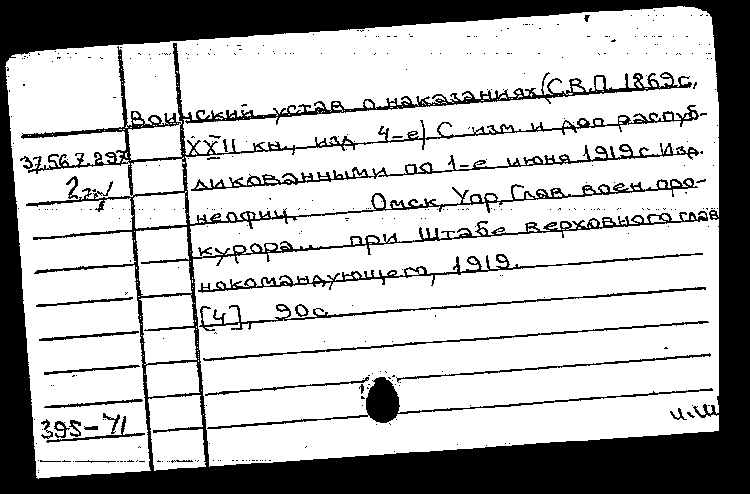 Воинский устав о наказаниях (С.В.П. 1869 г.,
XXII кн., изд. 4-е) С изм. и доп. распуб-
37.56.7.297
ликованными по 1-е июня 1919 г. Изд.
неофиц. Омск, Упр. Глав. воен. про-
курора... при Штабе Верховного глав
нокомандующего, 1919.
[4], 90 с.
395-71
И.Ш